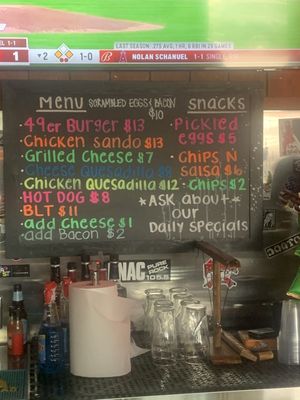 LAST SEASON: .275 AVG, 1 HR, 6 RBI IN 29 GAMES
1-1 1 2 1-0 B NOLAN SCHANUEL 1-1
MENU SCRAMBLED EGGS & BACON $10
49er Burger $13
Chicken Sando $13
Grilled Cheese $7
Cheese Quesadilla $8
Chicken Quesadilla $12
HOT DOG $8
BLT $11
add Cheese $1
add Bacon $2
SNACKS
Pickled
eggs $5
Chips N
Salsa $6
Chips $2
*ASK about*
our
Daily Specials
NAC PURE ROCK
105.5